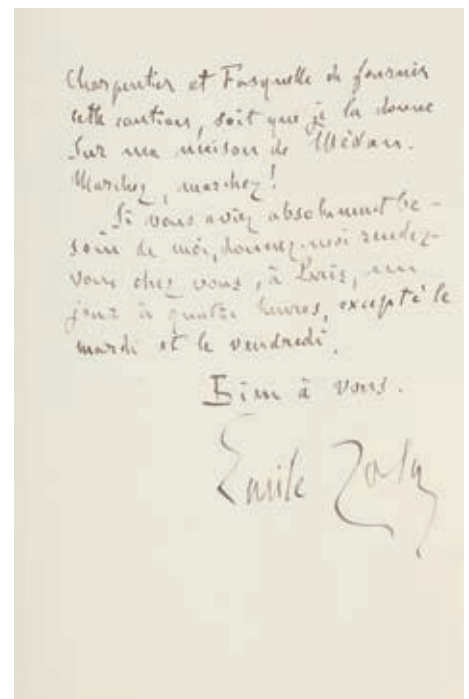 Charpentier et Fasquelle de fournir
cette caution, soit que je la donne
sur ma maison de Médan.
Marchez, marchez!
Si vous aviez absolument be-
soin de moi, donnez-moi rendez-
vous chez vous, à Paris, un
jour à quatre heures, excepté le
mardi et le vendredi.
Bien à vous.
Emile Zola